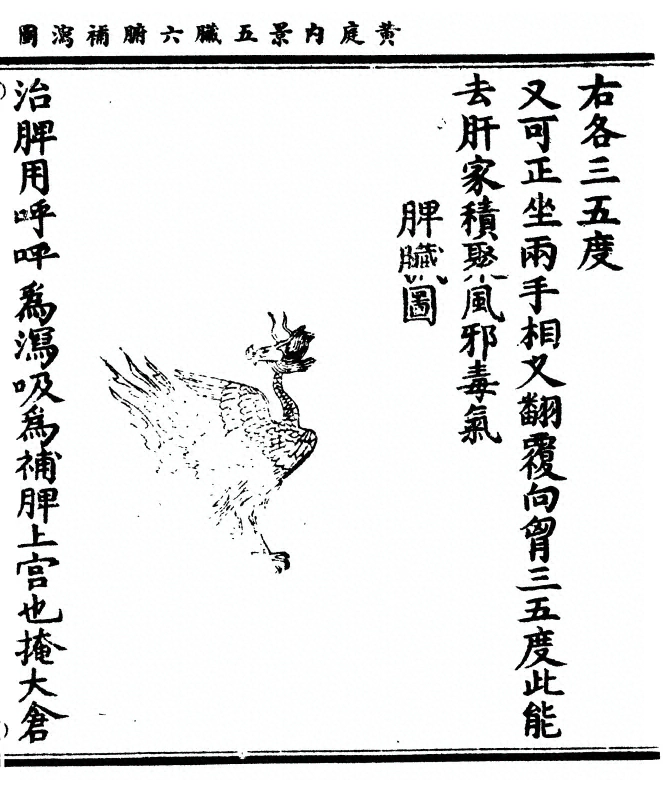 黃庭內景五臟六腑補瀉圖
右各三五度
又可正坐兩手相叉翻覆向胷三五度此能
去肝家積聚風邪毒氣
脾臟圖
治脾用呼呼爲瀉吸爲補脾上宫也掩大倉